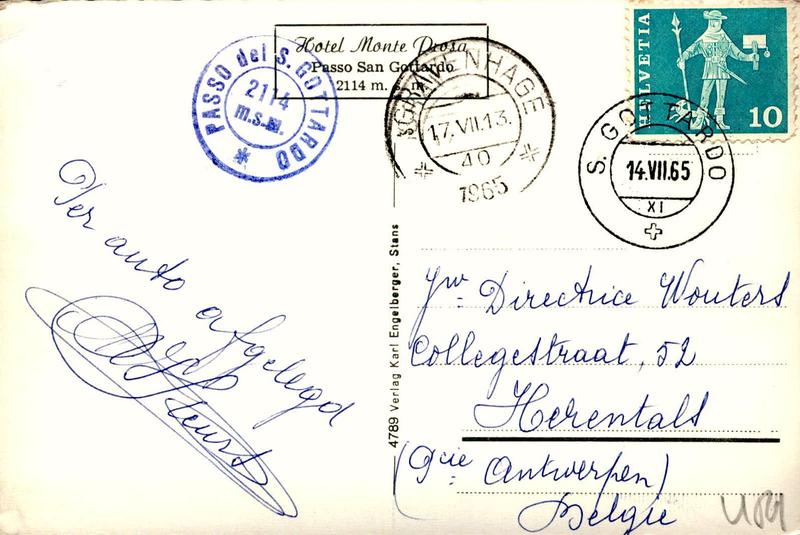 Hotel Monte Prosa
Passo San Gottardo
2114 m. s. m.
PASSO del S. GOTTARDO
2114
m.s.m.
'S GRAVENHAGE
17.VII.13.
40
1965
HELVETIA
10
S. GOTTARDO
14.VII.65
XI
Per auto
afgelegd
Steurs
4789 Verlag Karl Engelberger, Stans
Jw Directrice Wouters
Collegestraat, 52
Herentals
(Pcie Antwerpen)
Belgie